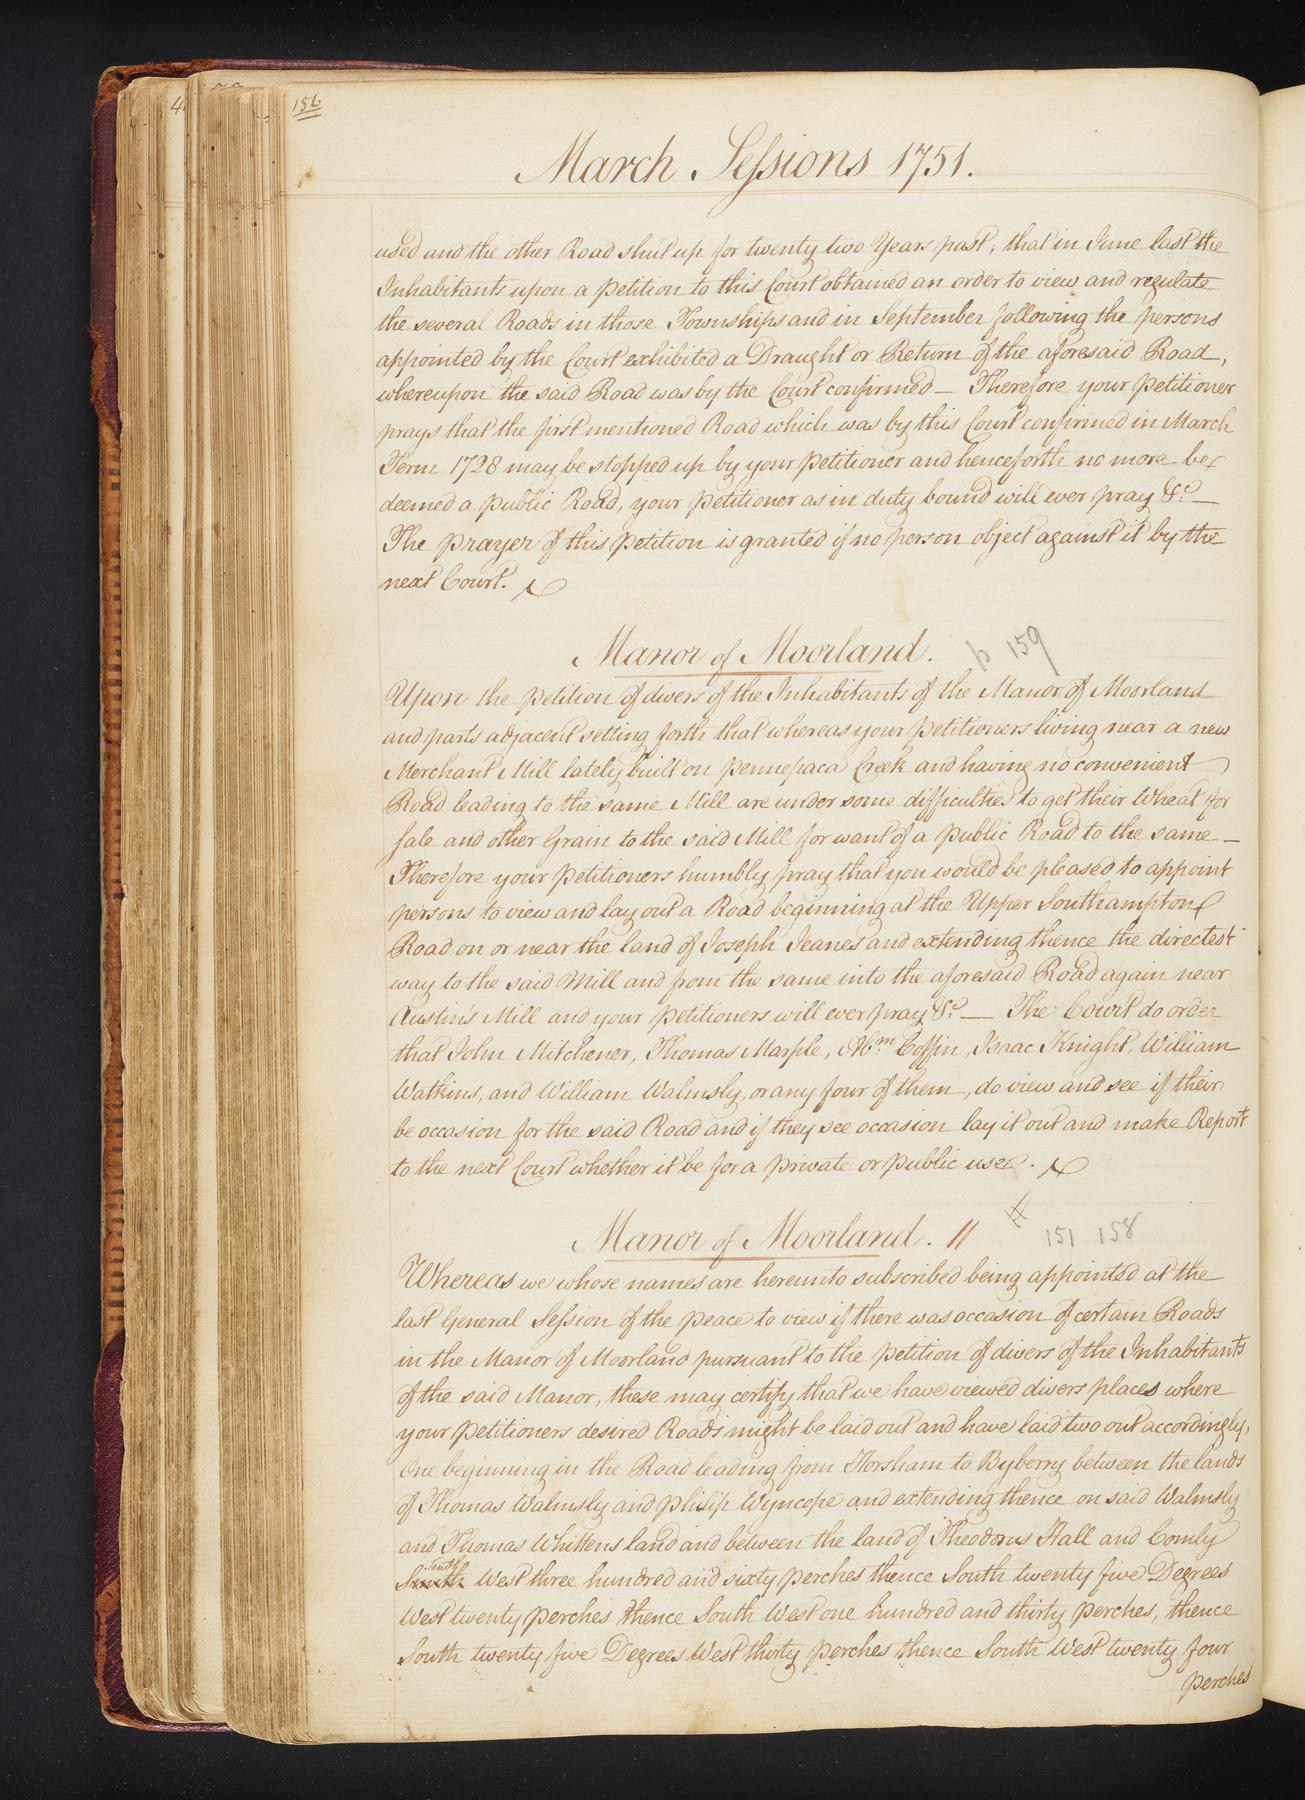 156
March Sessions 1751.
used and the other Road shut up for twenty two Years past; that in June last the
Inhabitants upon a petition to this Court obtained an order to view and regulate
the several Roads in those Townships and in September following the persons
appointed by the Court exhibited a Draught or Return of the aforesaid Road,
whereupon the said Road was by the Court confirmed — Therefore your Petitioner
prays that the first mentioned Road which was by this Court confirmed in March
Term 1728 may be stopped up by your Petitioner and henceforth no more be
deemed a public Road, your Petitioner as in duty bound will ever pray &c. —
The prayer of this Petition is granted if no person object against it by the
next Court.
Manor of Moorland. p 159
Upon the petition of divers of the Inhabitants of the Manor of Moorland
and parts adjacent setting forth that whereas your Petitioners living near a new
Merchant Mill lately built on Pennepaca Creek and having no convenient
Road leading to the same Mill are under some difficulties to get their Wheat for
sale and other Grain to the said Mill for want of a public Road to the same —
Therefore your Petitioners humbly pray that you would be pleased to appoint
persons to view and lay out a Road beginning at the Upper Southampton
Road on or near the land of Joseph Jeanes and extending thence the directest
way to the said Mill and from the same into the aforesaid Road again near
Austin's Mill and your Petitioners will ever pray &c. — The Court do order
that John Mitchener, Thomas Marple, Abm. Coffin, Isaac Knight, William
Watkins, and William Walmsly, or any four of them, do view and see if their
be occasion for the said Road and if they see occasion lay it out and make Report
to the next Court whether it be for a private or public use.
Manor of Moorland. 11 # 151 158
Whereas we whose names are hereunto subscribed being appointed at the
last General Session of the peace to view if there was occasion of certain Roads
in the Manor of Moorland pursuant to the petition of divers of the Inhabitants
of the said Manor, these may certify that we have viewed divers places where
your Petitioners desired Roads might be laid out and have laid two out accordingly,
One beginning in the Road leading from Horsham to Byberry between the lands
of Thomas Walmsly and Philip Wyncope and extending thence on said Walmsly
and Thomas Whittens land and between the land of Theodorus Hall and Comly
South West three hundred and sixty perches thence South twenty five Degrees
West twenty perches thence South West one hundred and thirty perches, thence
South twenty five Degrees West thirty perches thence South West twenty four
perches